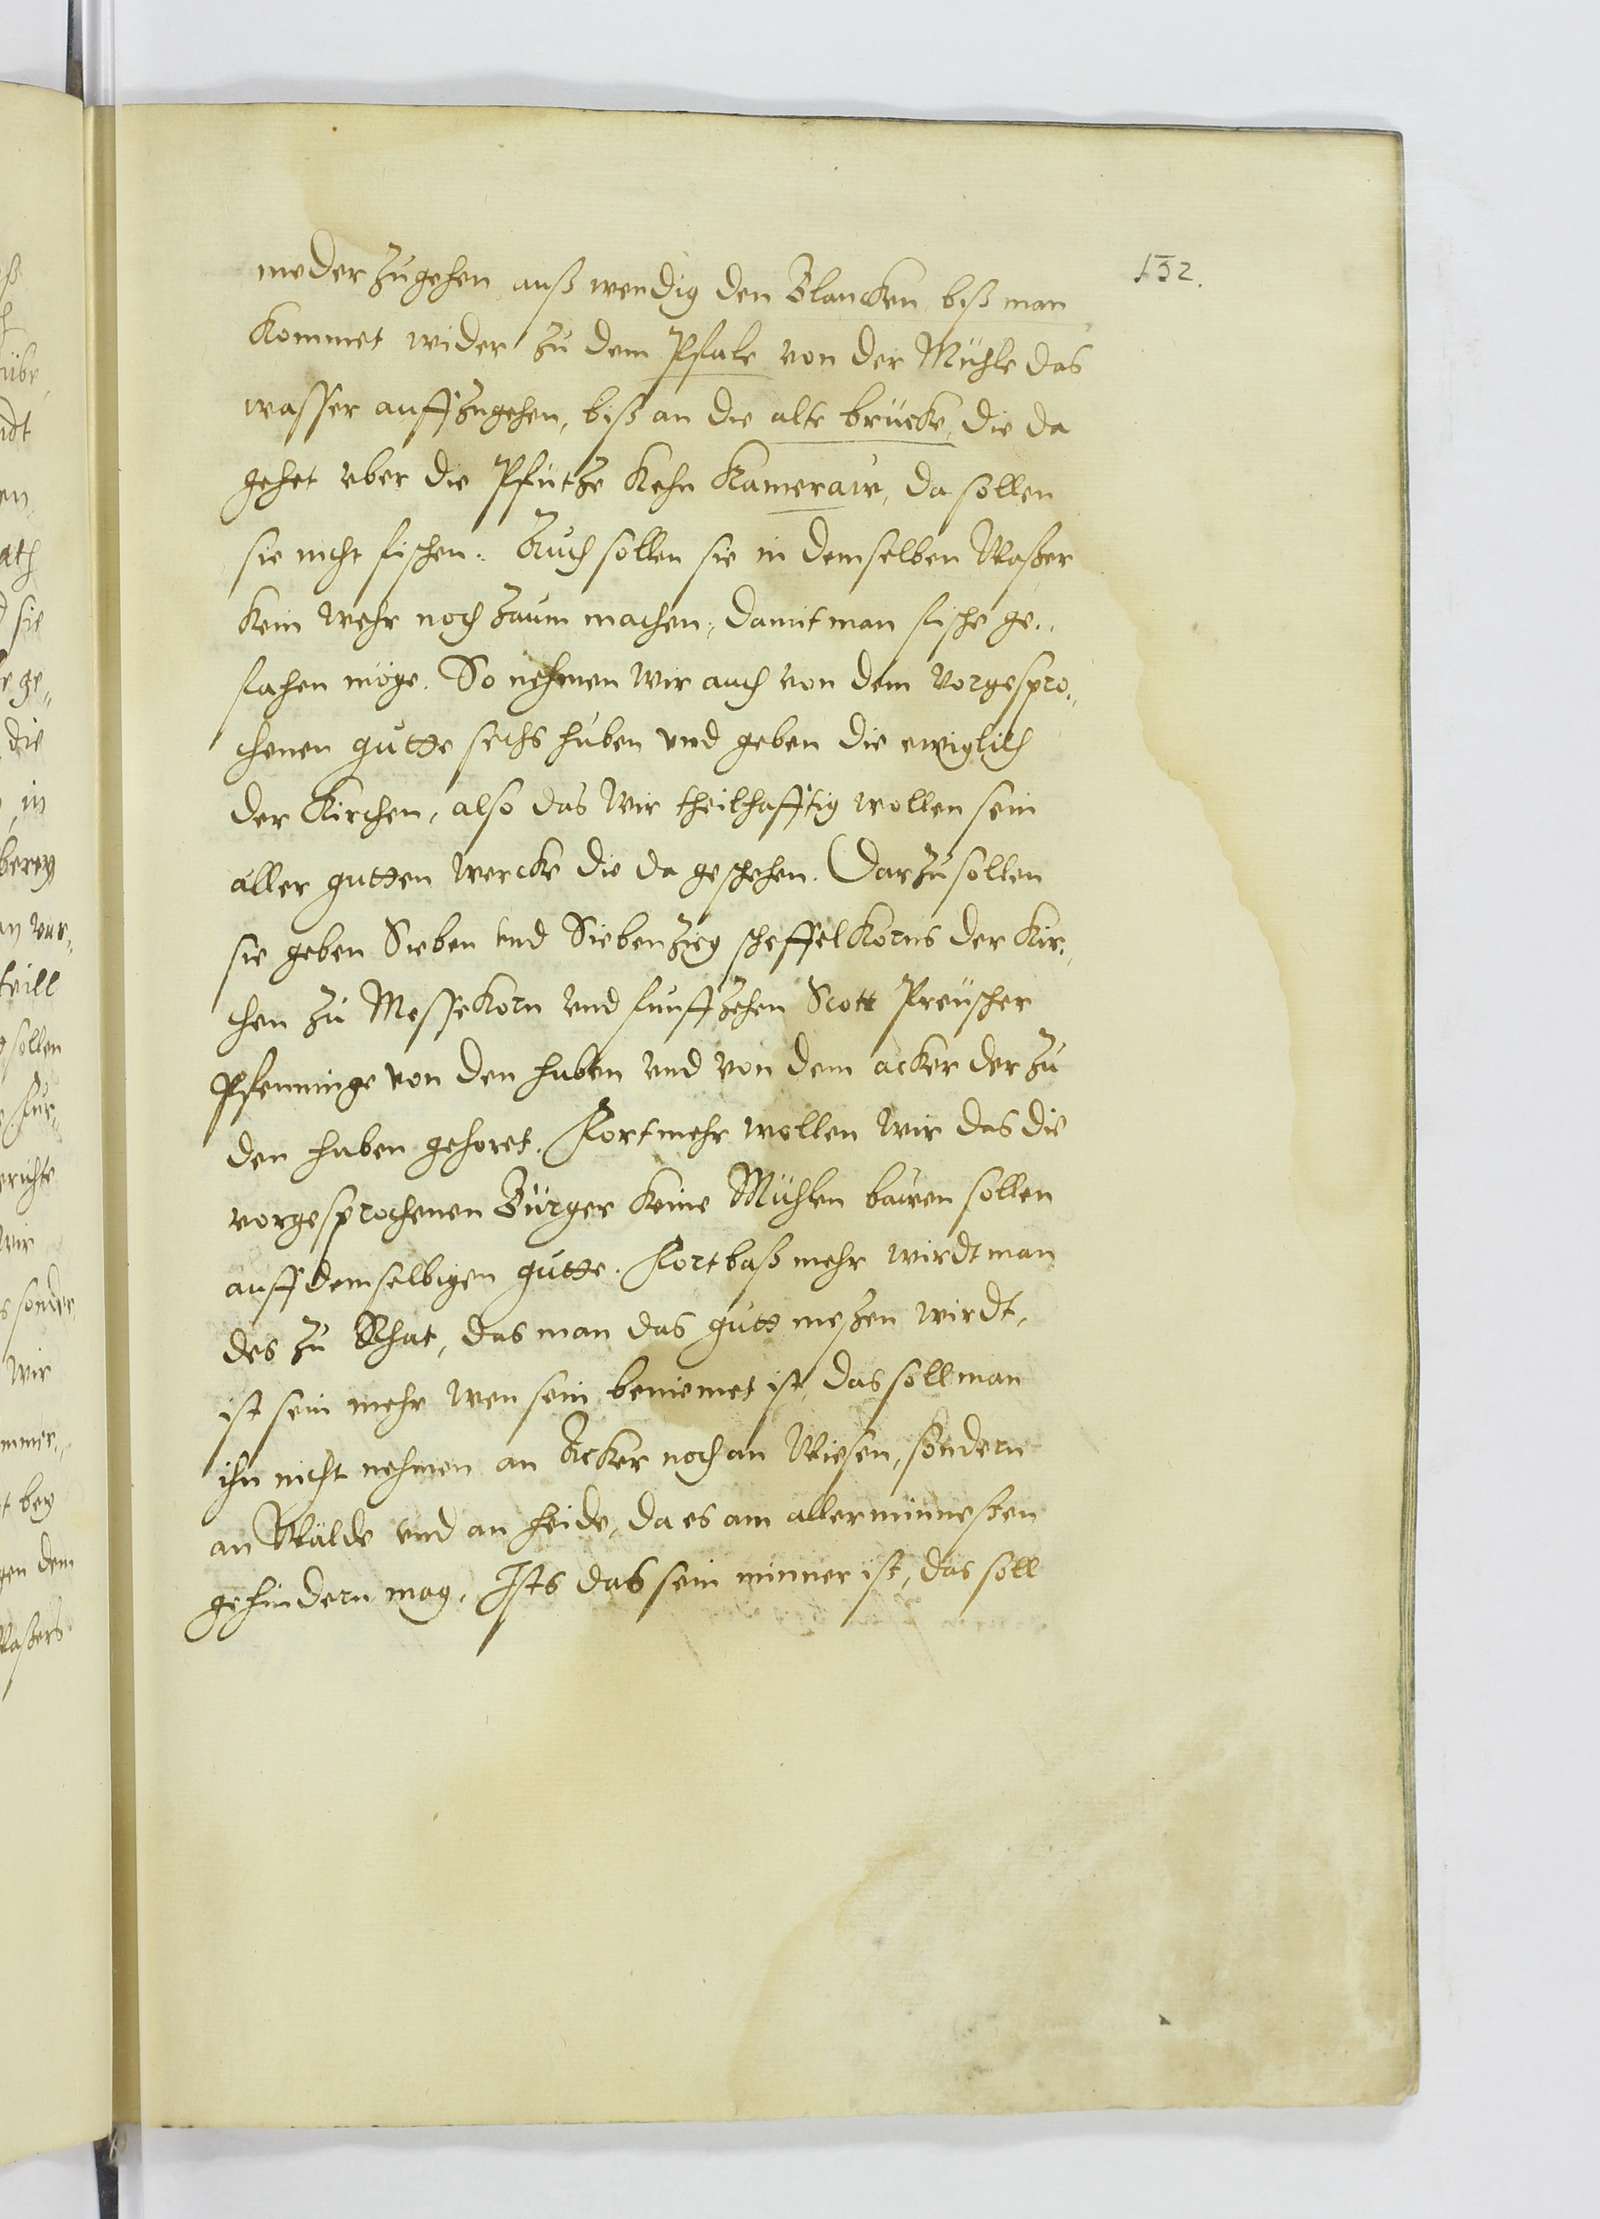 152.
nieder zugehen auß wendig den Blancken biß man
kommet wider zu dem Pfale von der Mühle das
wasser auffzugehen, biß an die alte brücke, die da
gehet vber die Pfütze kehn Kamerair, da sollen
sie nicht fischen. Auch sollen sie in demselben Waßer
kein wehr noch zaum machen, damit man fische ge„
fahen möge. So nehmen wir auch von dem vorgespro„
chenen gutte sechs huben vnd geben die ewiglich
der Kirchen, also das wir theilhafftig wollen sein
aller gutten wercke die da geschehen. Darzu sollen
sie geben Sieben vnd Siebenzig scheffel Korns der Kir„
chen zu Messekorn vnd funffzehen Scott Preuscher
Pfenninge von den huben vnd von dem acker der zu
den huben gehoret. Fortmehr wollen wir das die
vorgesprochenen Bürger keine Mühlen bawen sollen
auff demselbigen gutte. Fortbaß mehr wirdt man
des zu Rhat, das man das gutt meßen wirdt,
ist sein mehr wen sein beniemet ist, das soll man
ihn nicht nehmen an Acker noch an Wiesen, sondern
an Wälde vnd an heide, da es am allerminnesten
gehindern mag. Ists das sein minner ist, das soll